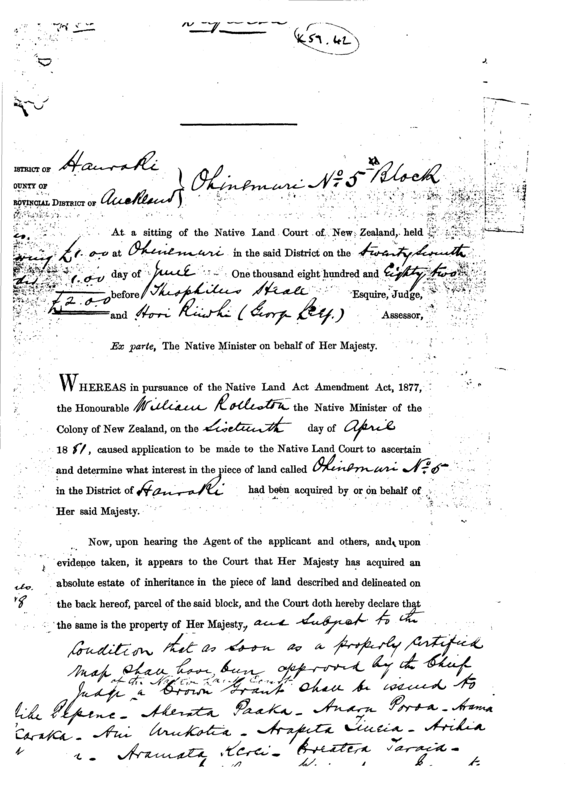 K59.42
DISTRICT OF Hauraki
COUNTY OF
PROVINCIAL DISTRICT OF Auckland
Ohinemuri No 5 Block
At a sitting of the Native Land Court of New Zealand, held
£1.00 at Ohinemuri in the said District on the twenty seventh
1.00 day of June One thousand eight hundred and Eighty two
£2.00 before Theophilus Heale Esquire, Judge,
and Hori Riwhi (George        ) Assessor,
Ex parte, The Native Minister on behalf of Her Majesty.
WHEREAS in pursuance of the Native Land Act Amendment Act, 1877,
the Honourable William Rolleston the Native Minister of the
Colony of New Zealand, on the Sixteenth day of April
1881, caused application to be made to the Native Land Court to ascertain
and determine what interest in the piece of land called Ohinemuri No 5
in the District of Hauraki had been acquired by or on behalf of
Her said Majesty.
Now, upon hearing the Agent of the applicant and others, and upon
evidence taken, it appears to the Court that Her Majesty has acquired an
absolute estate of inheritance in the piece of land described and delineated on
the back hereof, parcel of the said block, and the Court doth hereby declare that
the same is the property of Her Majesty, and subject to the
condition that as soon as a properly certified
map shall have been approved by the Chief
of the Native Land Court
Judge a Crown Grant shall be issued to
Pepene - Akerata Paaka - Anaru Poroa - Arama
Karaka - Ani - Arapeta - Arihia
Aramata - Taraia -